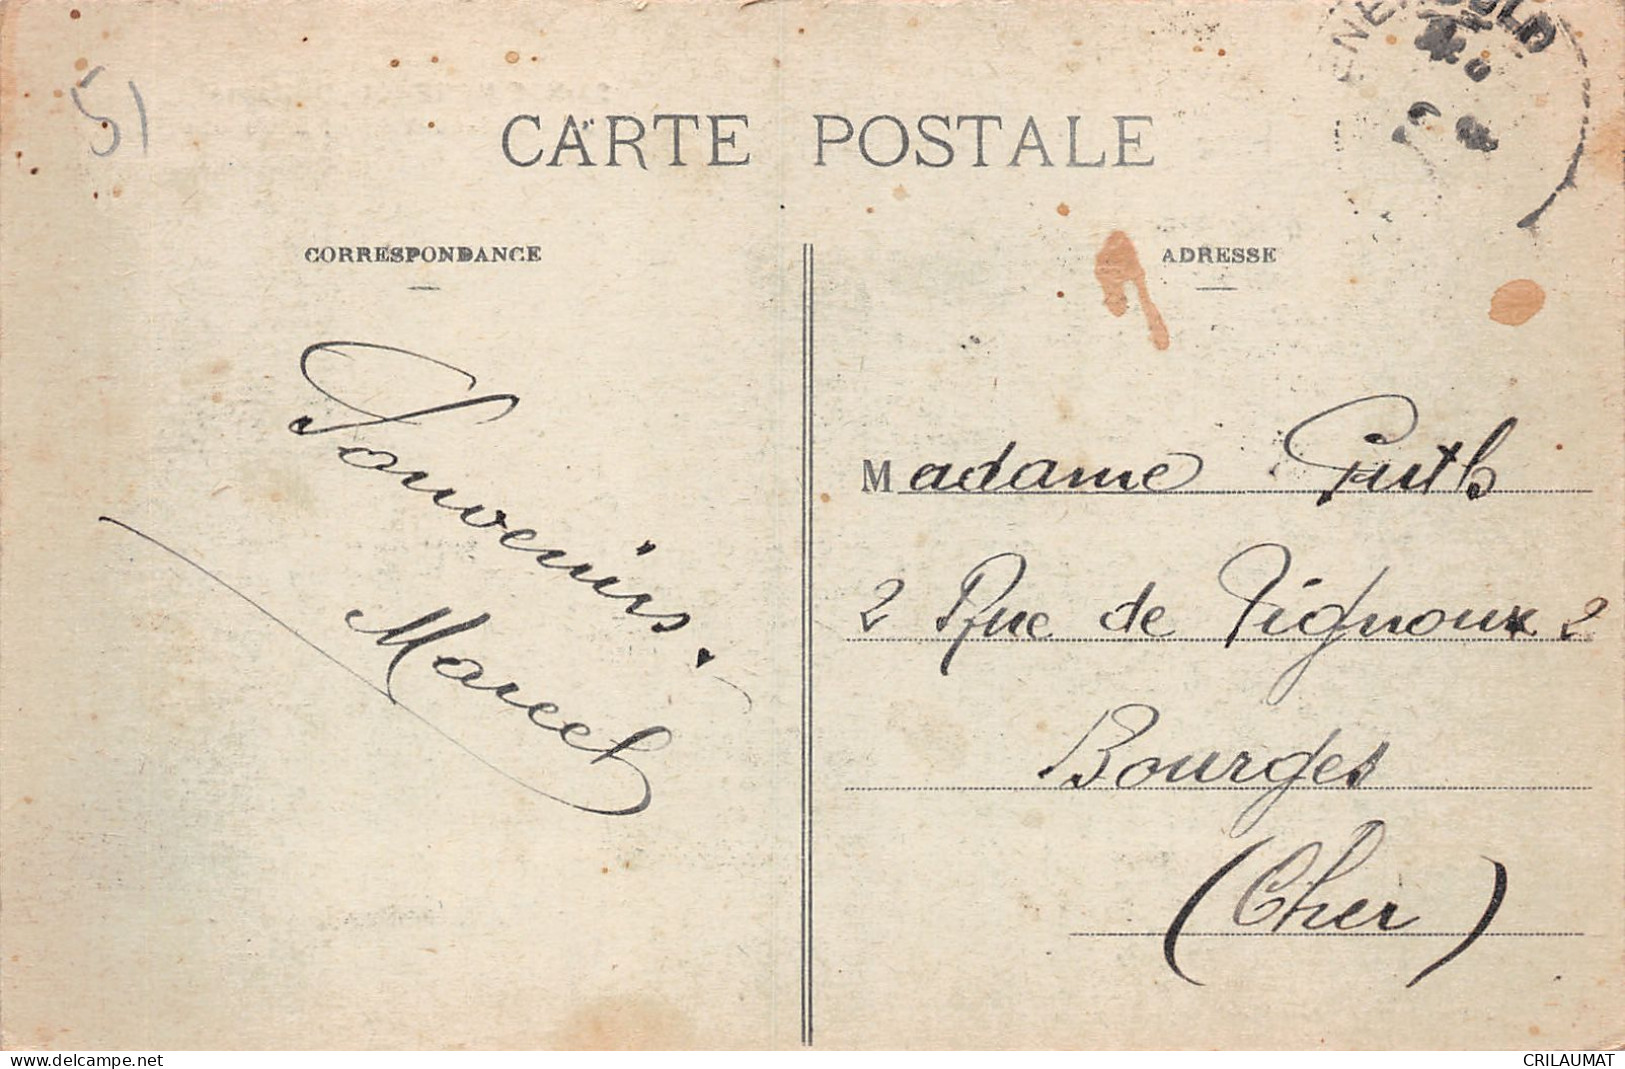 51
CARTE POSTALE
CORRESPONDANCE
ADRESSE
Souvenirs.
Marcel
Madame Guth
2 Rue de Vignoux 2
Bourges
(Cher)
www.delcampe.net
CRILAUMAT